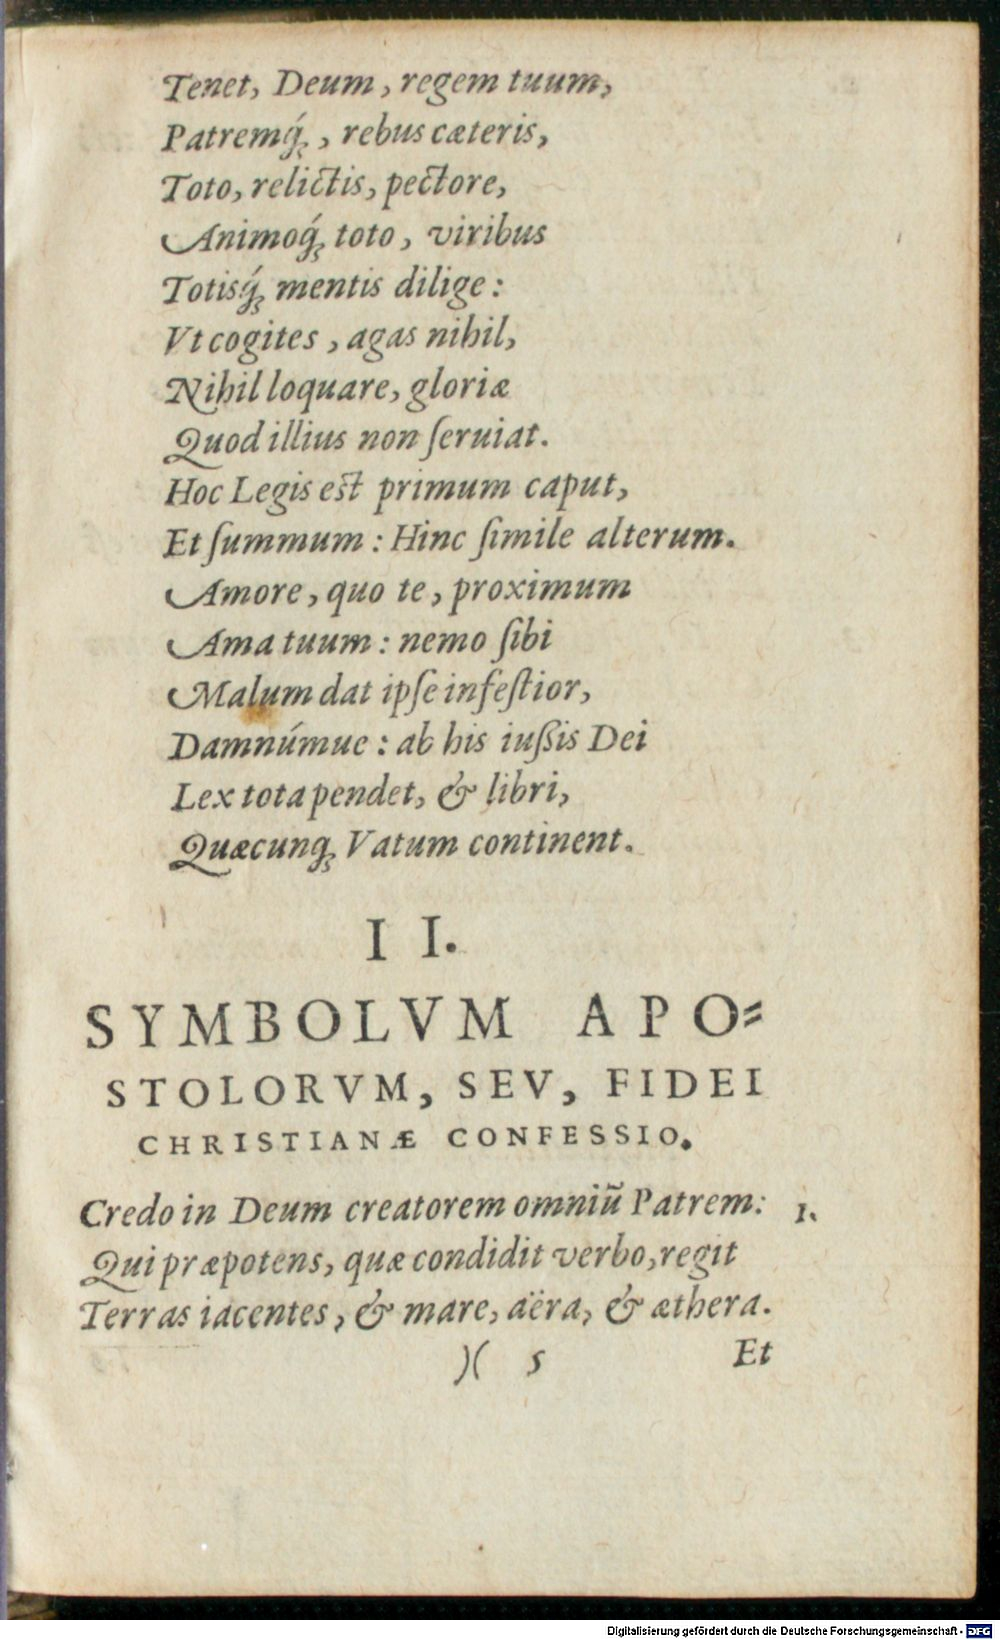 Tenet, Deum, regem tuum,
Patremq́;, rebus cæteris,
Toto, relictis, pectore,
Animoq́; toto, viribus
Totisq́; mentis dilige:
Vt cogites, agas nihil,
Nihil loquare, gloriæ
Quod illius non ſeruiat.
Hoc Legis est primum caput,
Et ſummum: Hinc ſimile alterum.
Amore, quo te, proximum
Ama tuum: nemo ſibi
Malum dat ipſe infeſtior,
Damnúmue: ab his iußis Dei
Lex tota pendet, & libri,
Quæcunq; Vatum continent.
II.
SYMBOLVM APO⸗
STOLORVM, SEV, FIDEI
CHRISTIANÆ CONFESSIO.
Credo in Deum creatorem omniū Patrem: 1.
Qui præpotens, quæ condidit verbo, regit
Terras iacentes, & mare, aëra, & æthera.
)( 5 Et
Digitalisierung gefördert durch die Deutsche Forschungsgemeinschaft - DFG